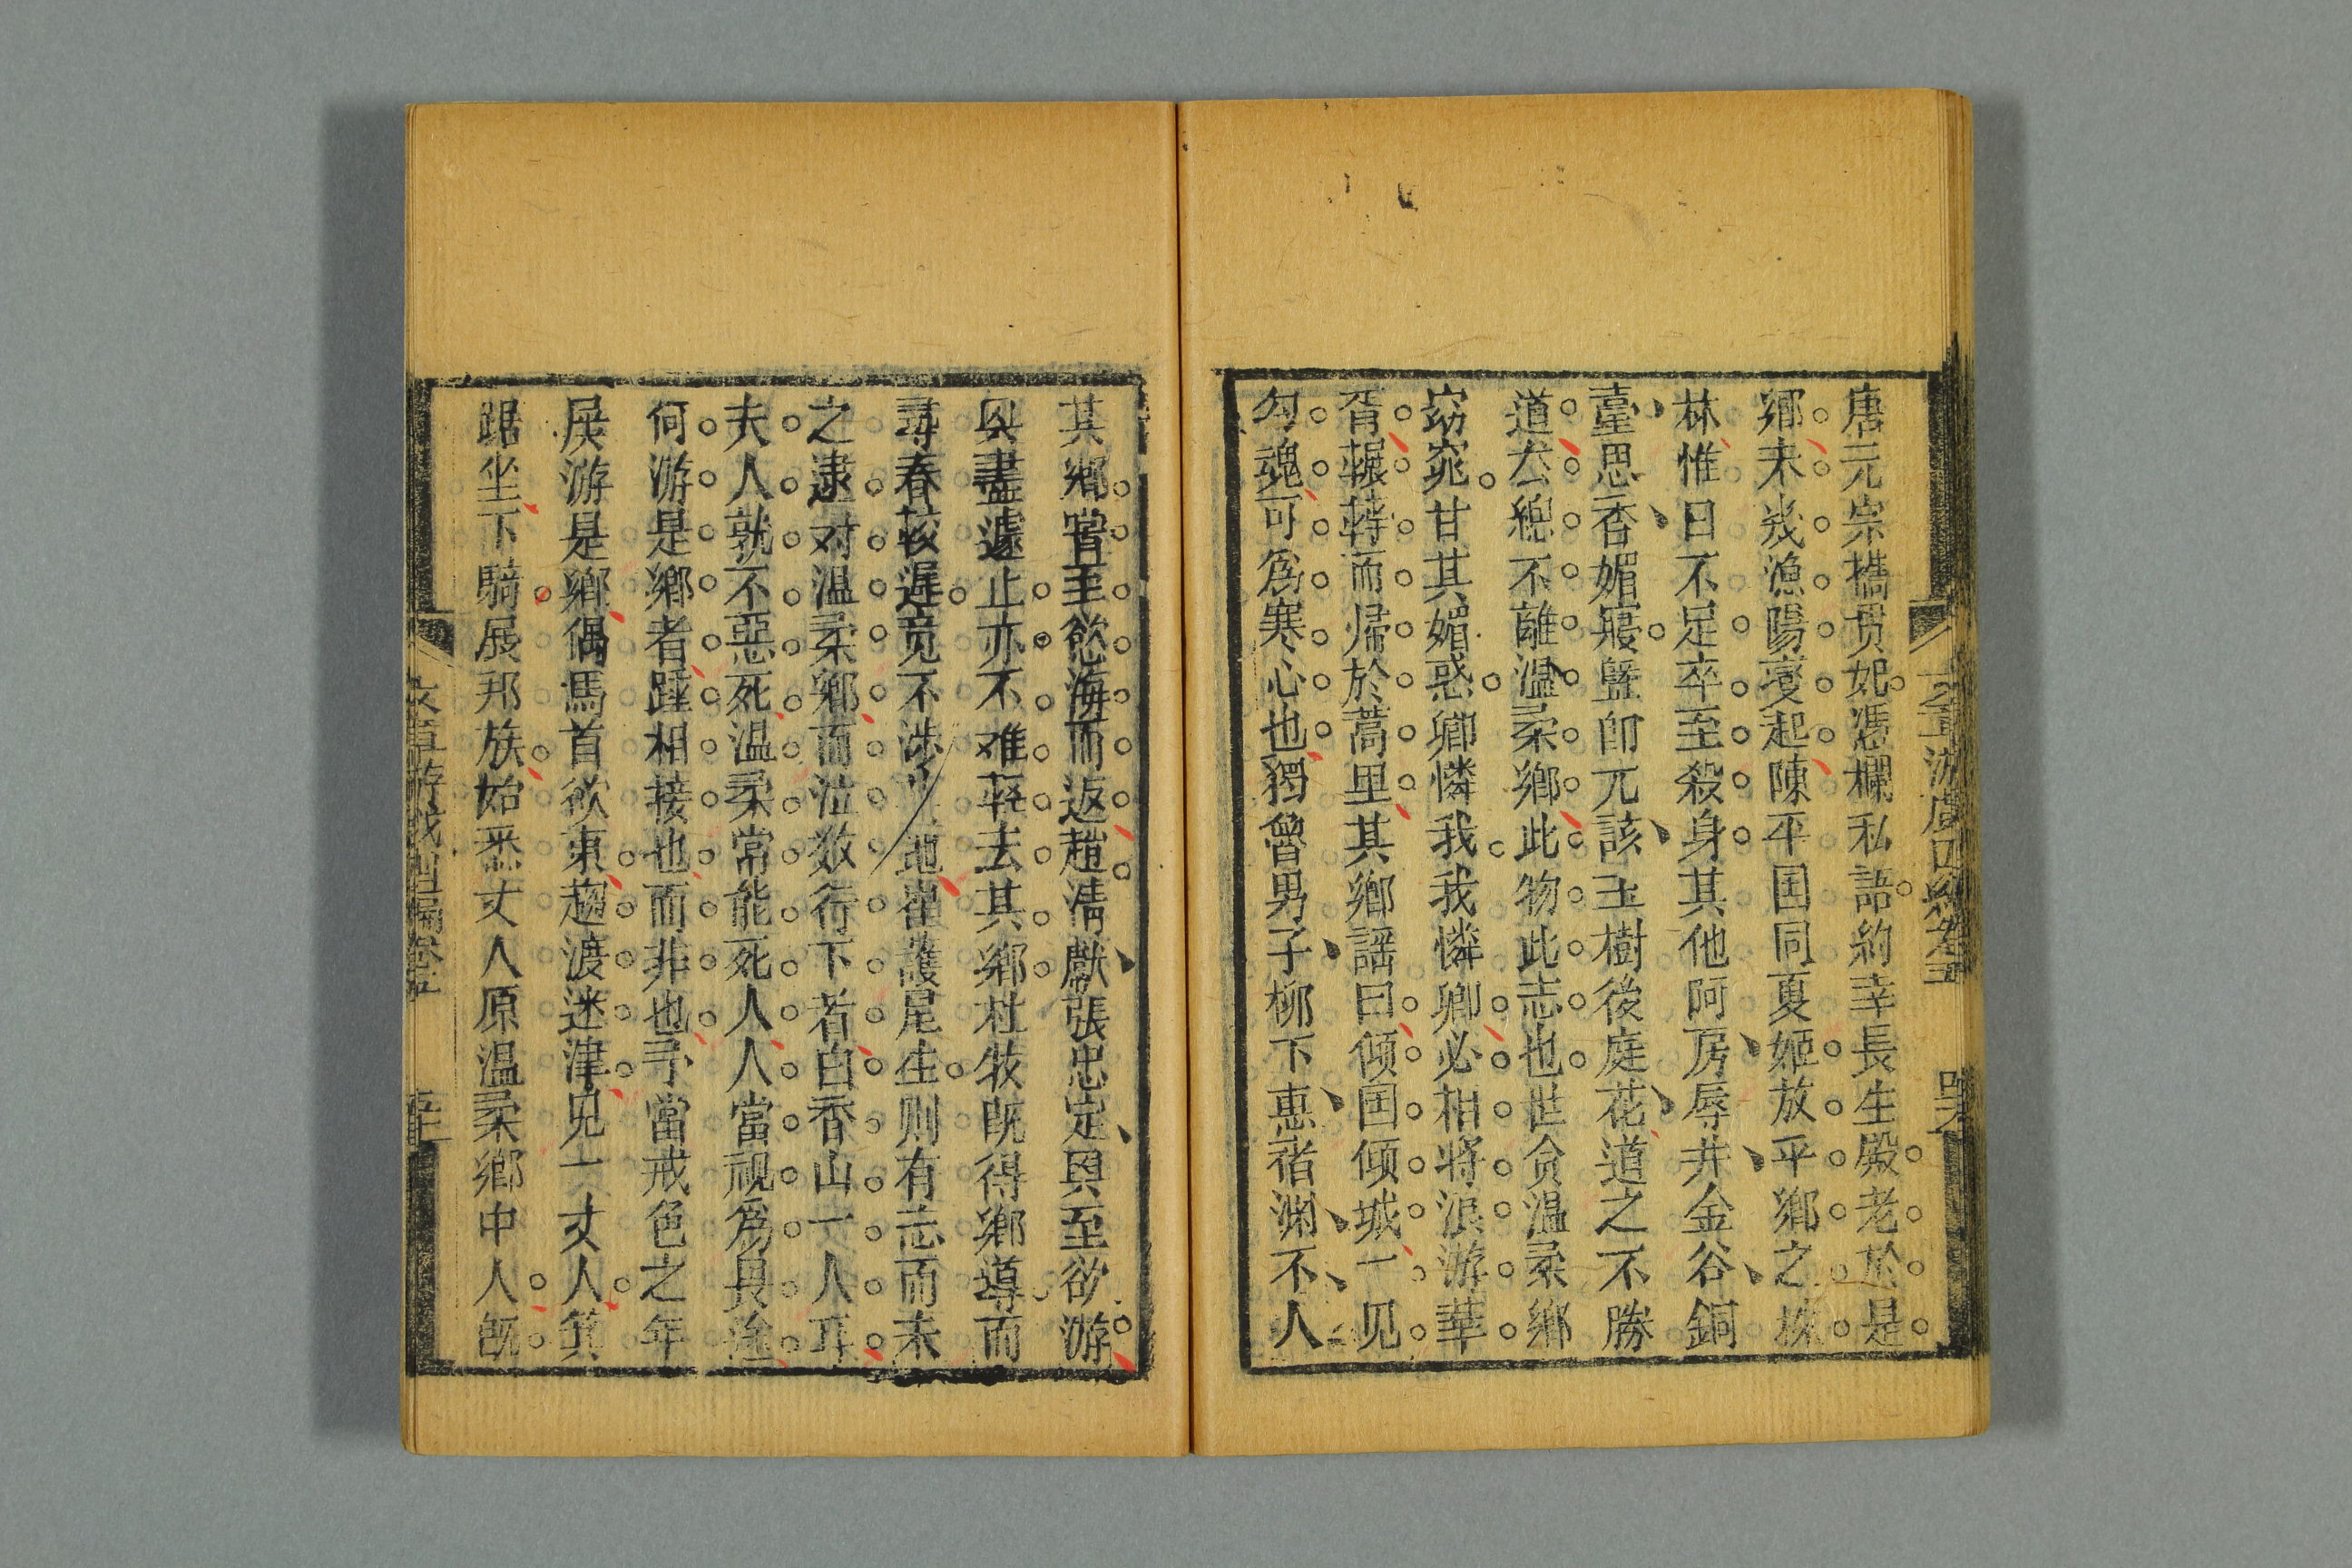 唐元宗擕贵妃憑欄私語約幸長生殿老於是
鄉未㡬漁陽变起陳平国同夏姬放平鄉之株
林惟日不足卒至殺身其他阿房辱井金谷銅
臺思香媚寢盬卽兀該玉樹後庭花道之不勝
道去緫不離温柔鄉此物此志也世贪温柔鄉
窈窕甘其媚惑卿憐我我憐卿必相將浪游華
胥輾轉而歸於蒿里其鄉謡曰倾国倾城一见
勾魂可為寒心也獨曾男子柳下惠褚渊不人
其鄉嘗至慾海而返趙清獻張忠定與至欲游
與盡遽止亦不难軽去其鄉杜牧旣得鄉導而
尋春較遲竟不涉地崔護尾生则有志而未
之逮对温柔鄉而泣数行下者白香山一人耳
夫人就不惡死温柔常能死人人當視為畏途
何游是鄉者踵相接也而非也予當戒色之年
屐游是鄉偶馬首欲東趨渡迷津見一丈人箕
踞坐下騎展邦族始悉丈人原温柔鄉中人旣